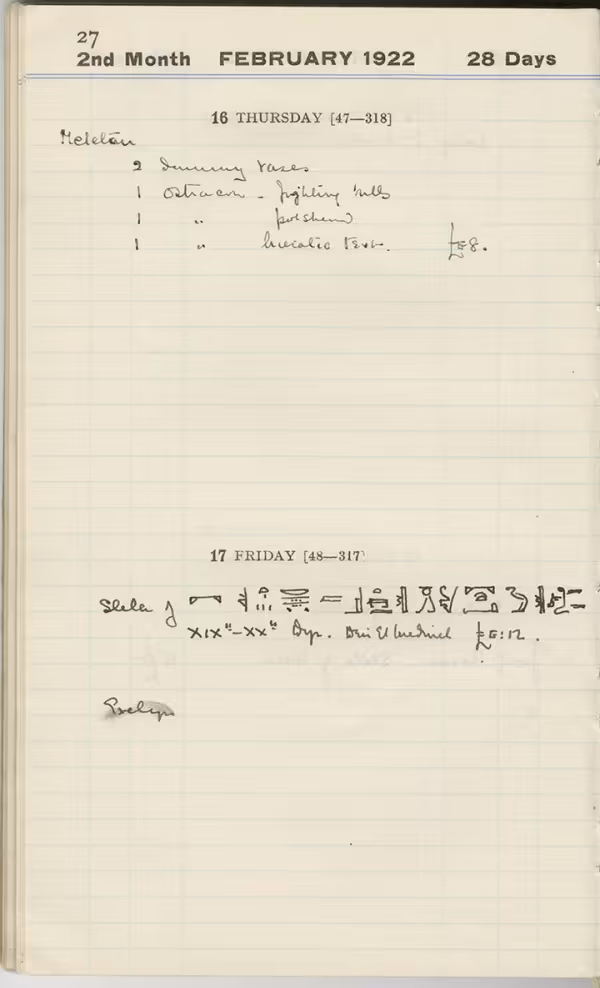 27
2nd Month FEBRUARY 1922 28 Days
16 THURSDAY [47—318]
2 dummy vases
1 ostracon - fighting bulls
1 " potsherd
1 " hieratic text. £E8.
17 FRIDAY [48—317]
Stela of
XIXth-XXth Dyn. Deir El Medineh £E:12.
Evelyn